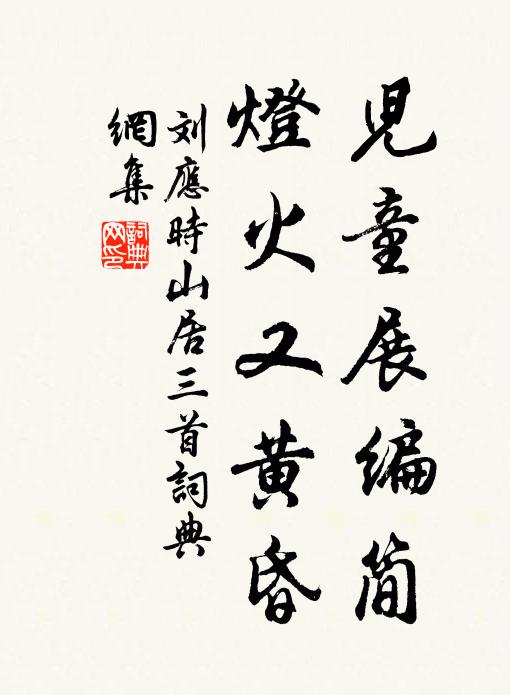 兒童展編簡
燈火又黃昏
刘應時山居三首詞典
網集
詞典
网印